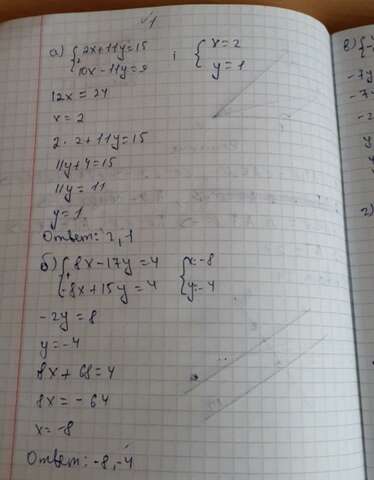 √1
а) { 2x+11y=15 ; { x=2
10x-11y=9 y=1
12x=24
x=2
2·2+11y=15
11y+4=15
11y=11
y=1
Ответ: 2,1
б) { 8x-17y=4 { x=-8
-8x+15y=4 y=-4
-2y=8
y=-4
8x+68=4
8x=-64
x=-8
Ответ: -8,-4
в) {
-7y
-7
y
г)